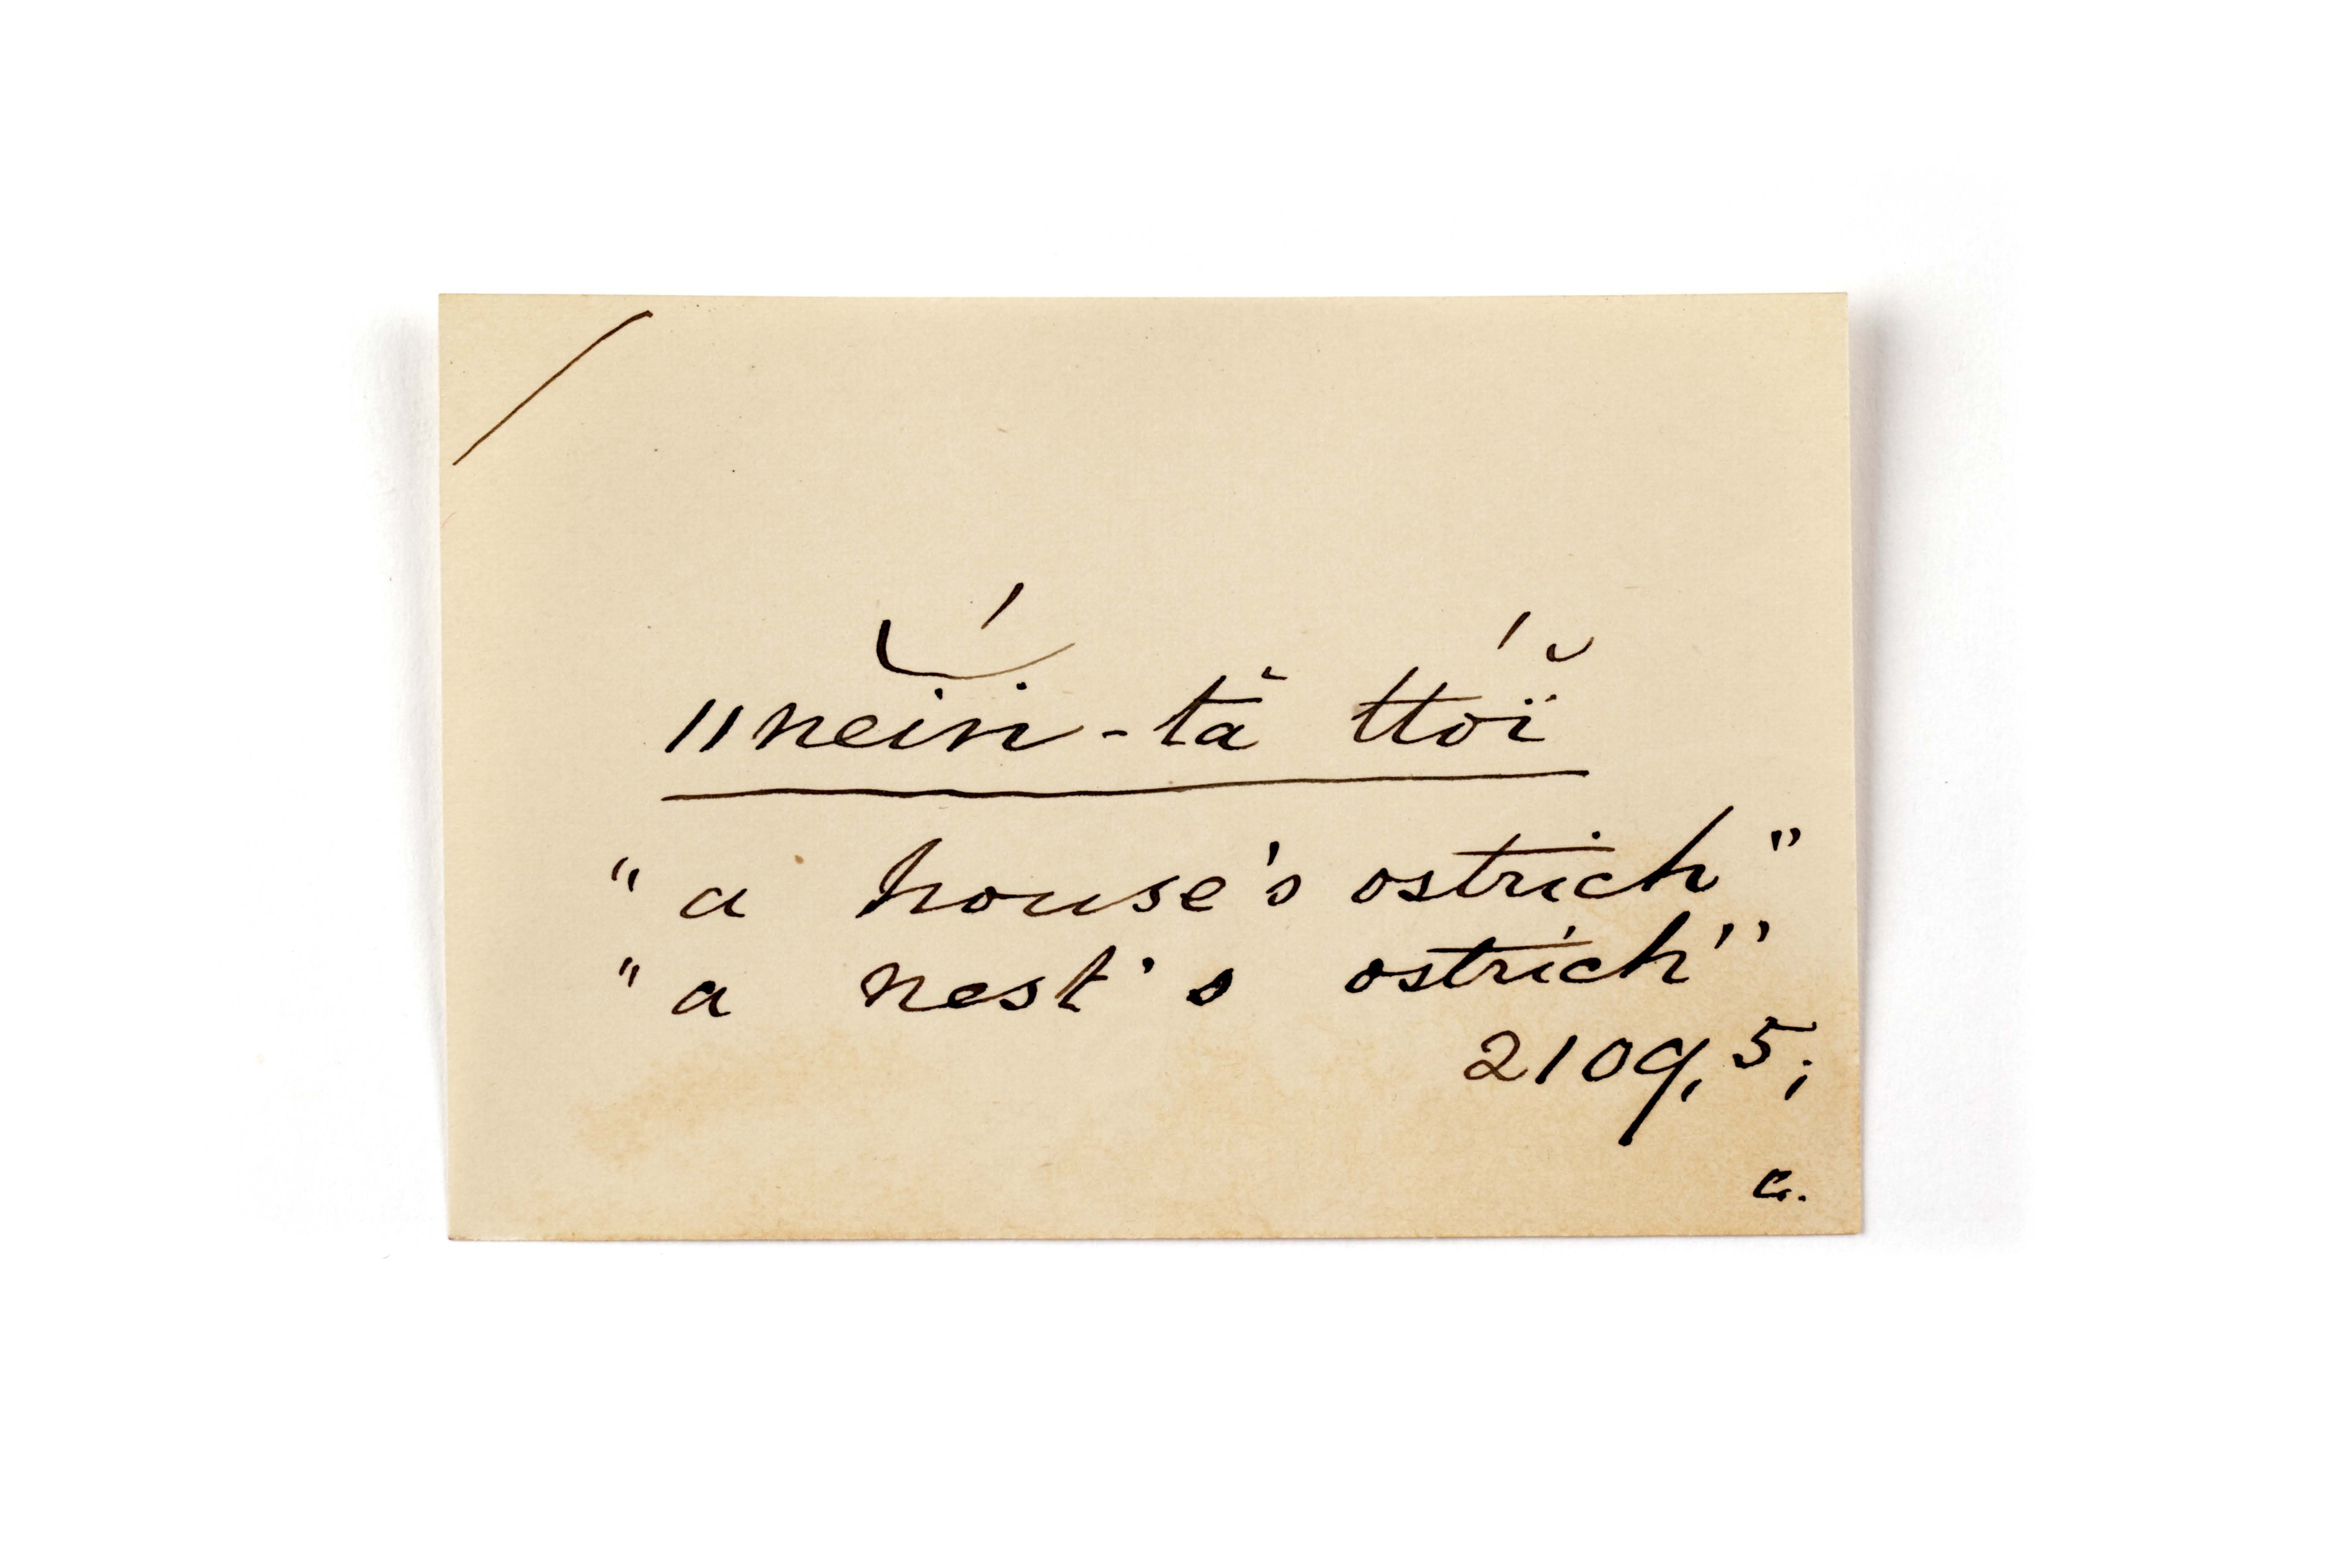 ǁneiṅ-tă ttóĭ
"a house's ostrich"
"a nest's ostrich"
2109,5;
c.